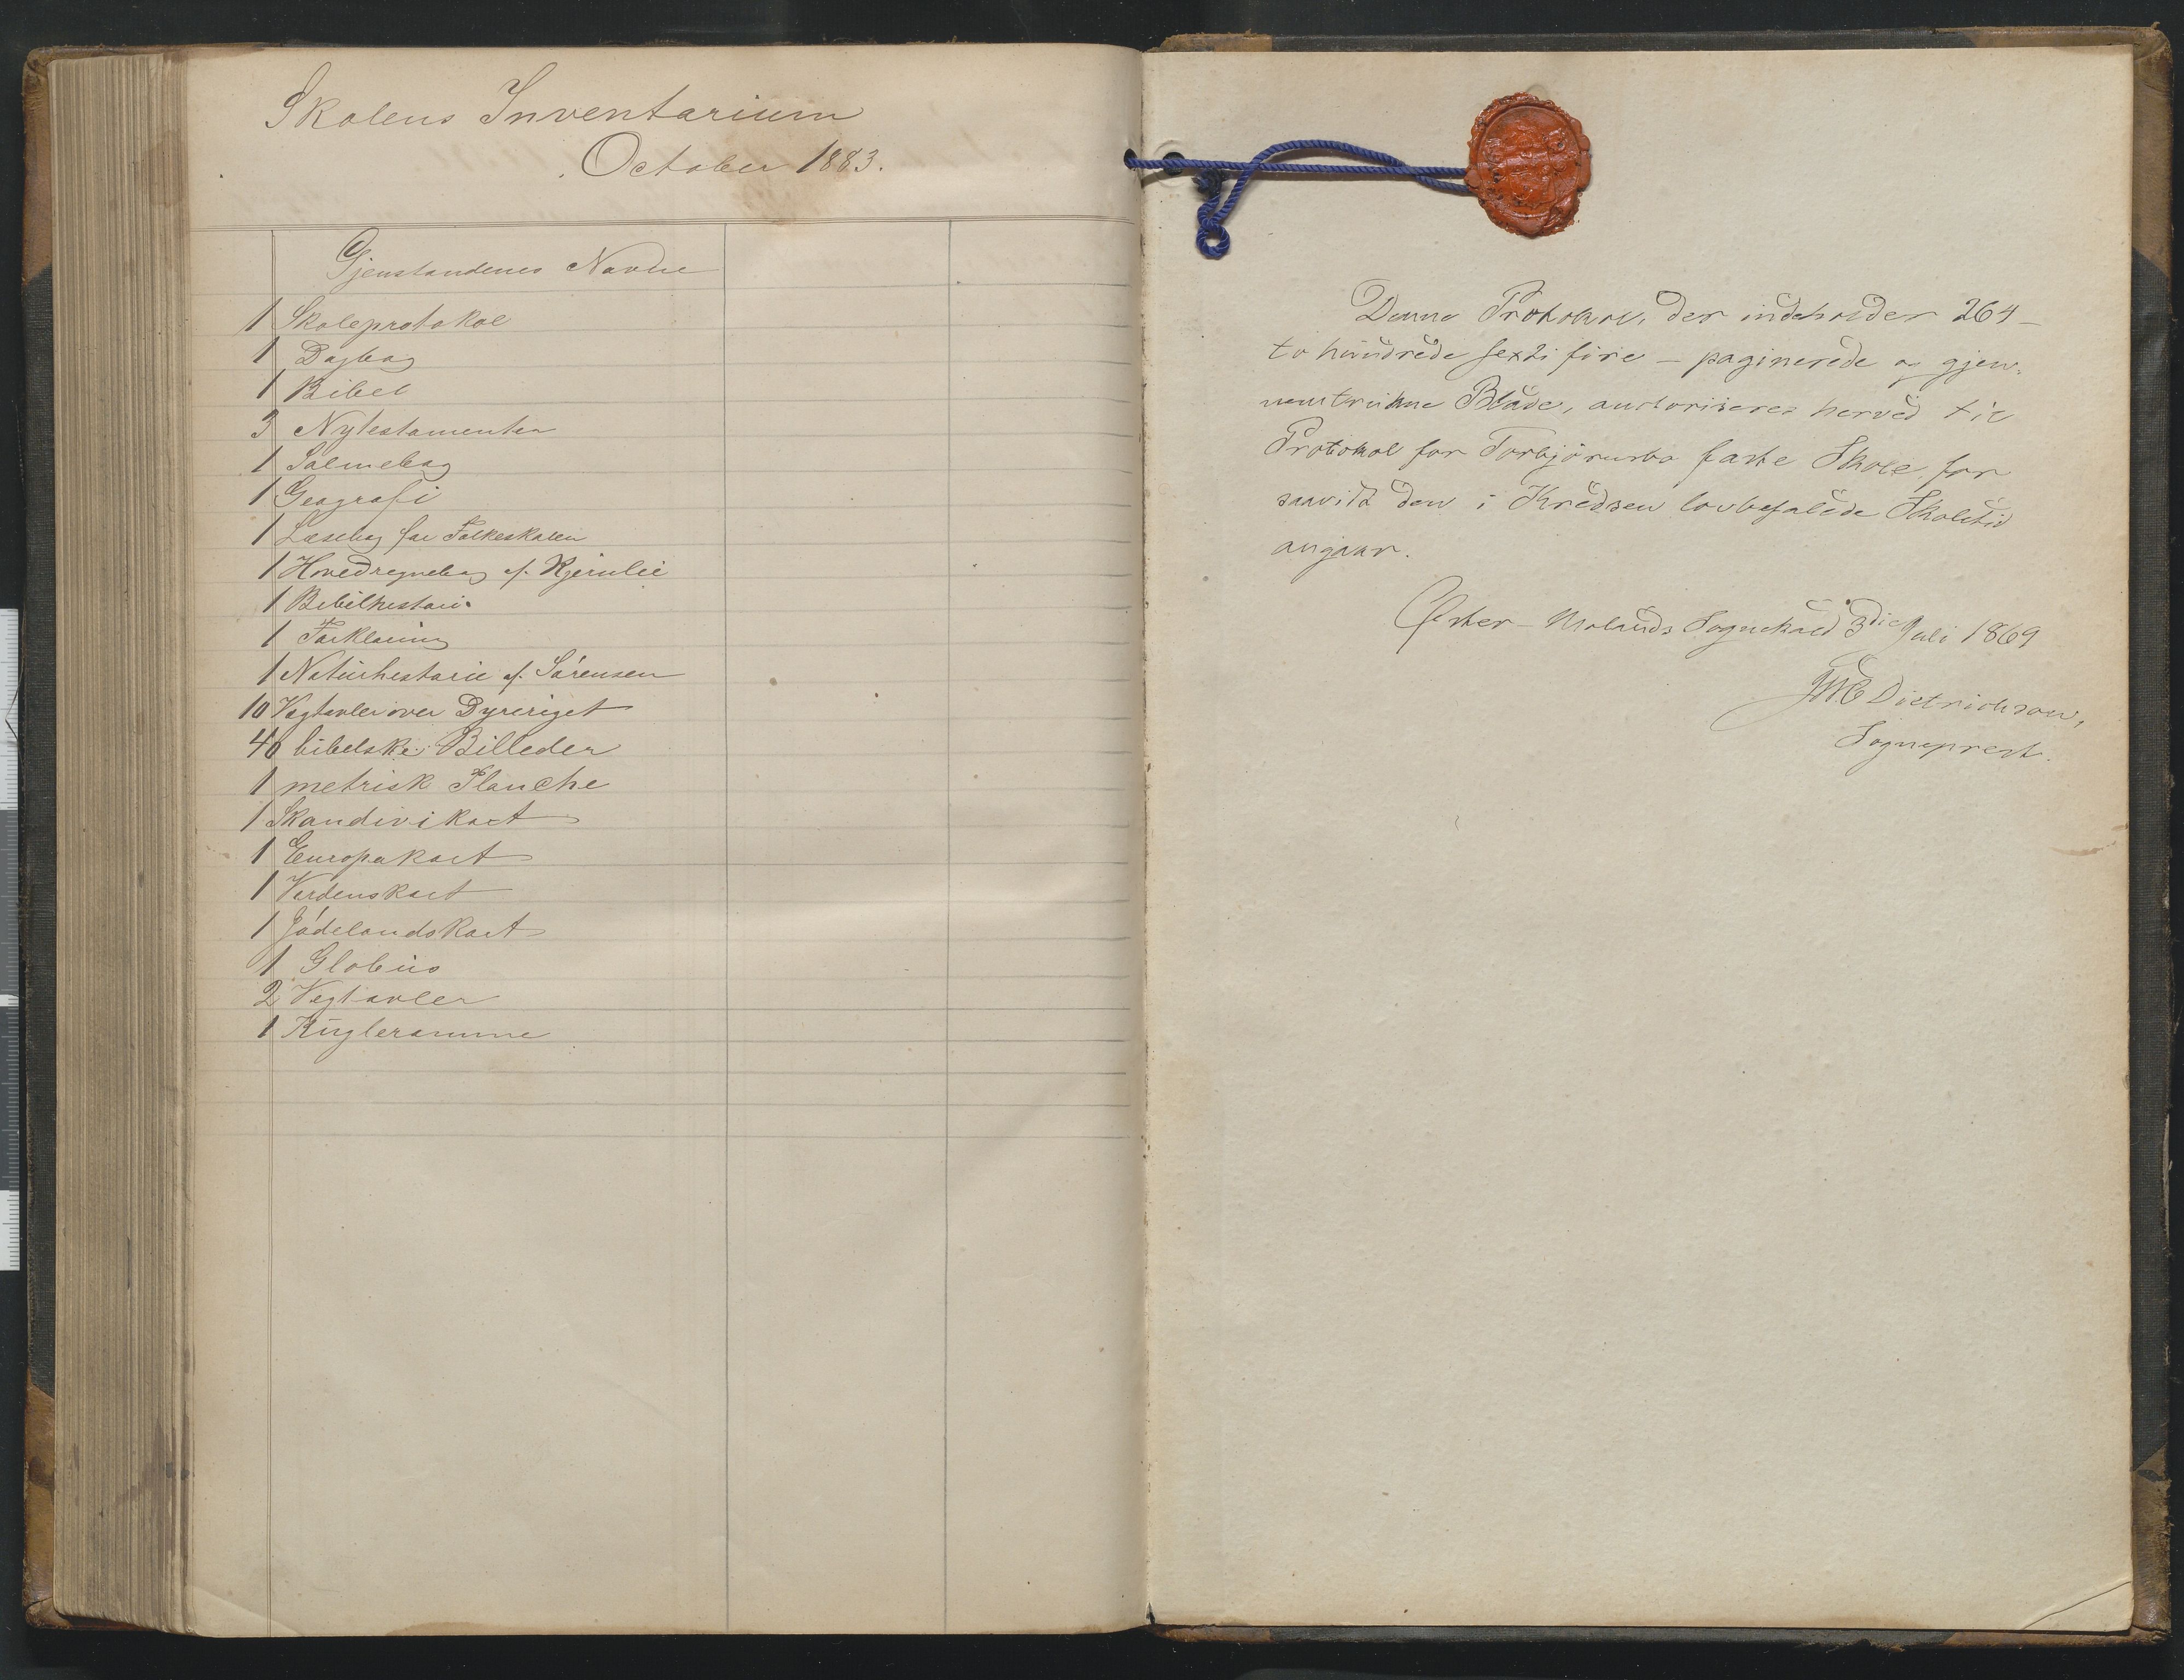 Skolens Inventarium
October 1883.
Gjenstandenes Navne
1 Skoleprotokol
1 Dagbog
1 Bibel
3 Nytestamenter
1 Salmebog
1 Geografi
1 Læsebog for Folkeskolen
1 Hovedregnebog af Kjerulie
1 Bibelhistori
1 Forklaring
1 Naturhistorie af Sørensen
10 Vegtavler over Dyreriget
40 bibelske Billeder
1 metrisk Planche
1 Skandivikart
1 Europakart
1 Verdenskart
1 Jødelandskart
1 Globus
2 Vegtavler
1 Kugleramme
Denne Protokol, der indeholder 264 –
to hundrede sexti fire – paginerede og gjen-
nemtrukne Blade, auctoriseres herved til
Protokol for Torbjörnsbo faste Skole for
saavidt den i Kredsen lovbefalede Skoletid
angaar.
Øster-Molands Sognekald 3die Juli 1869
Dietrichson,
Sogneprest.